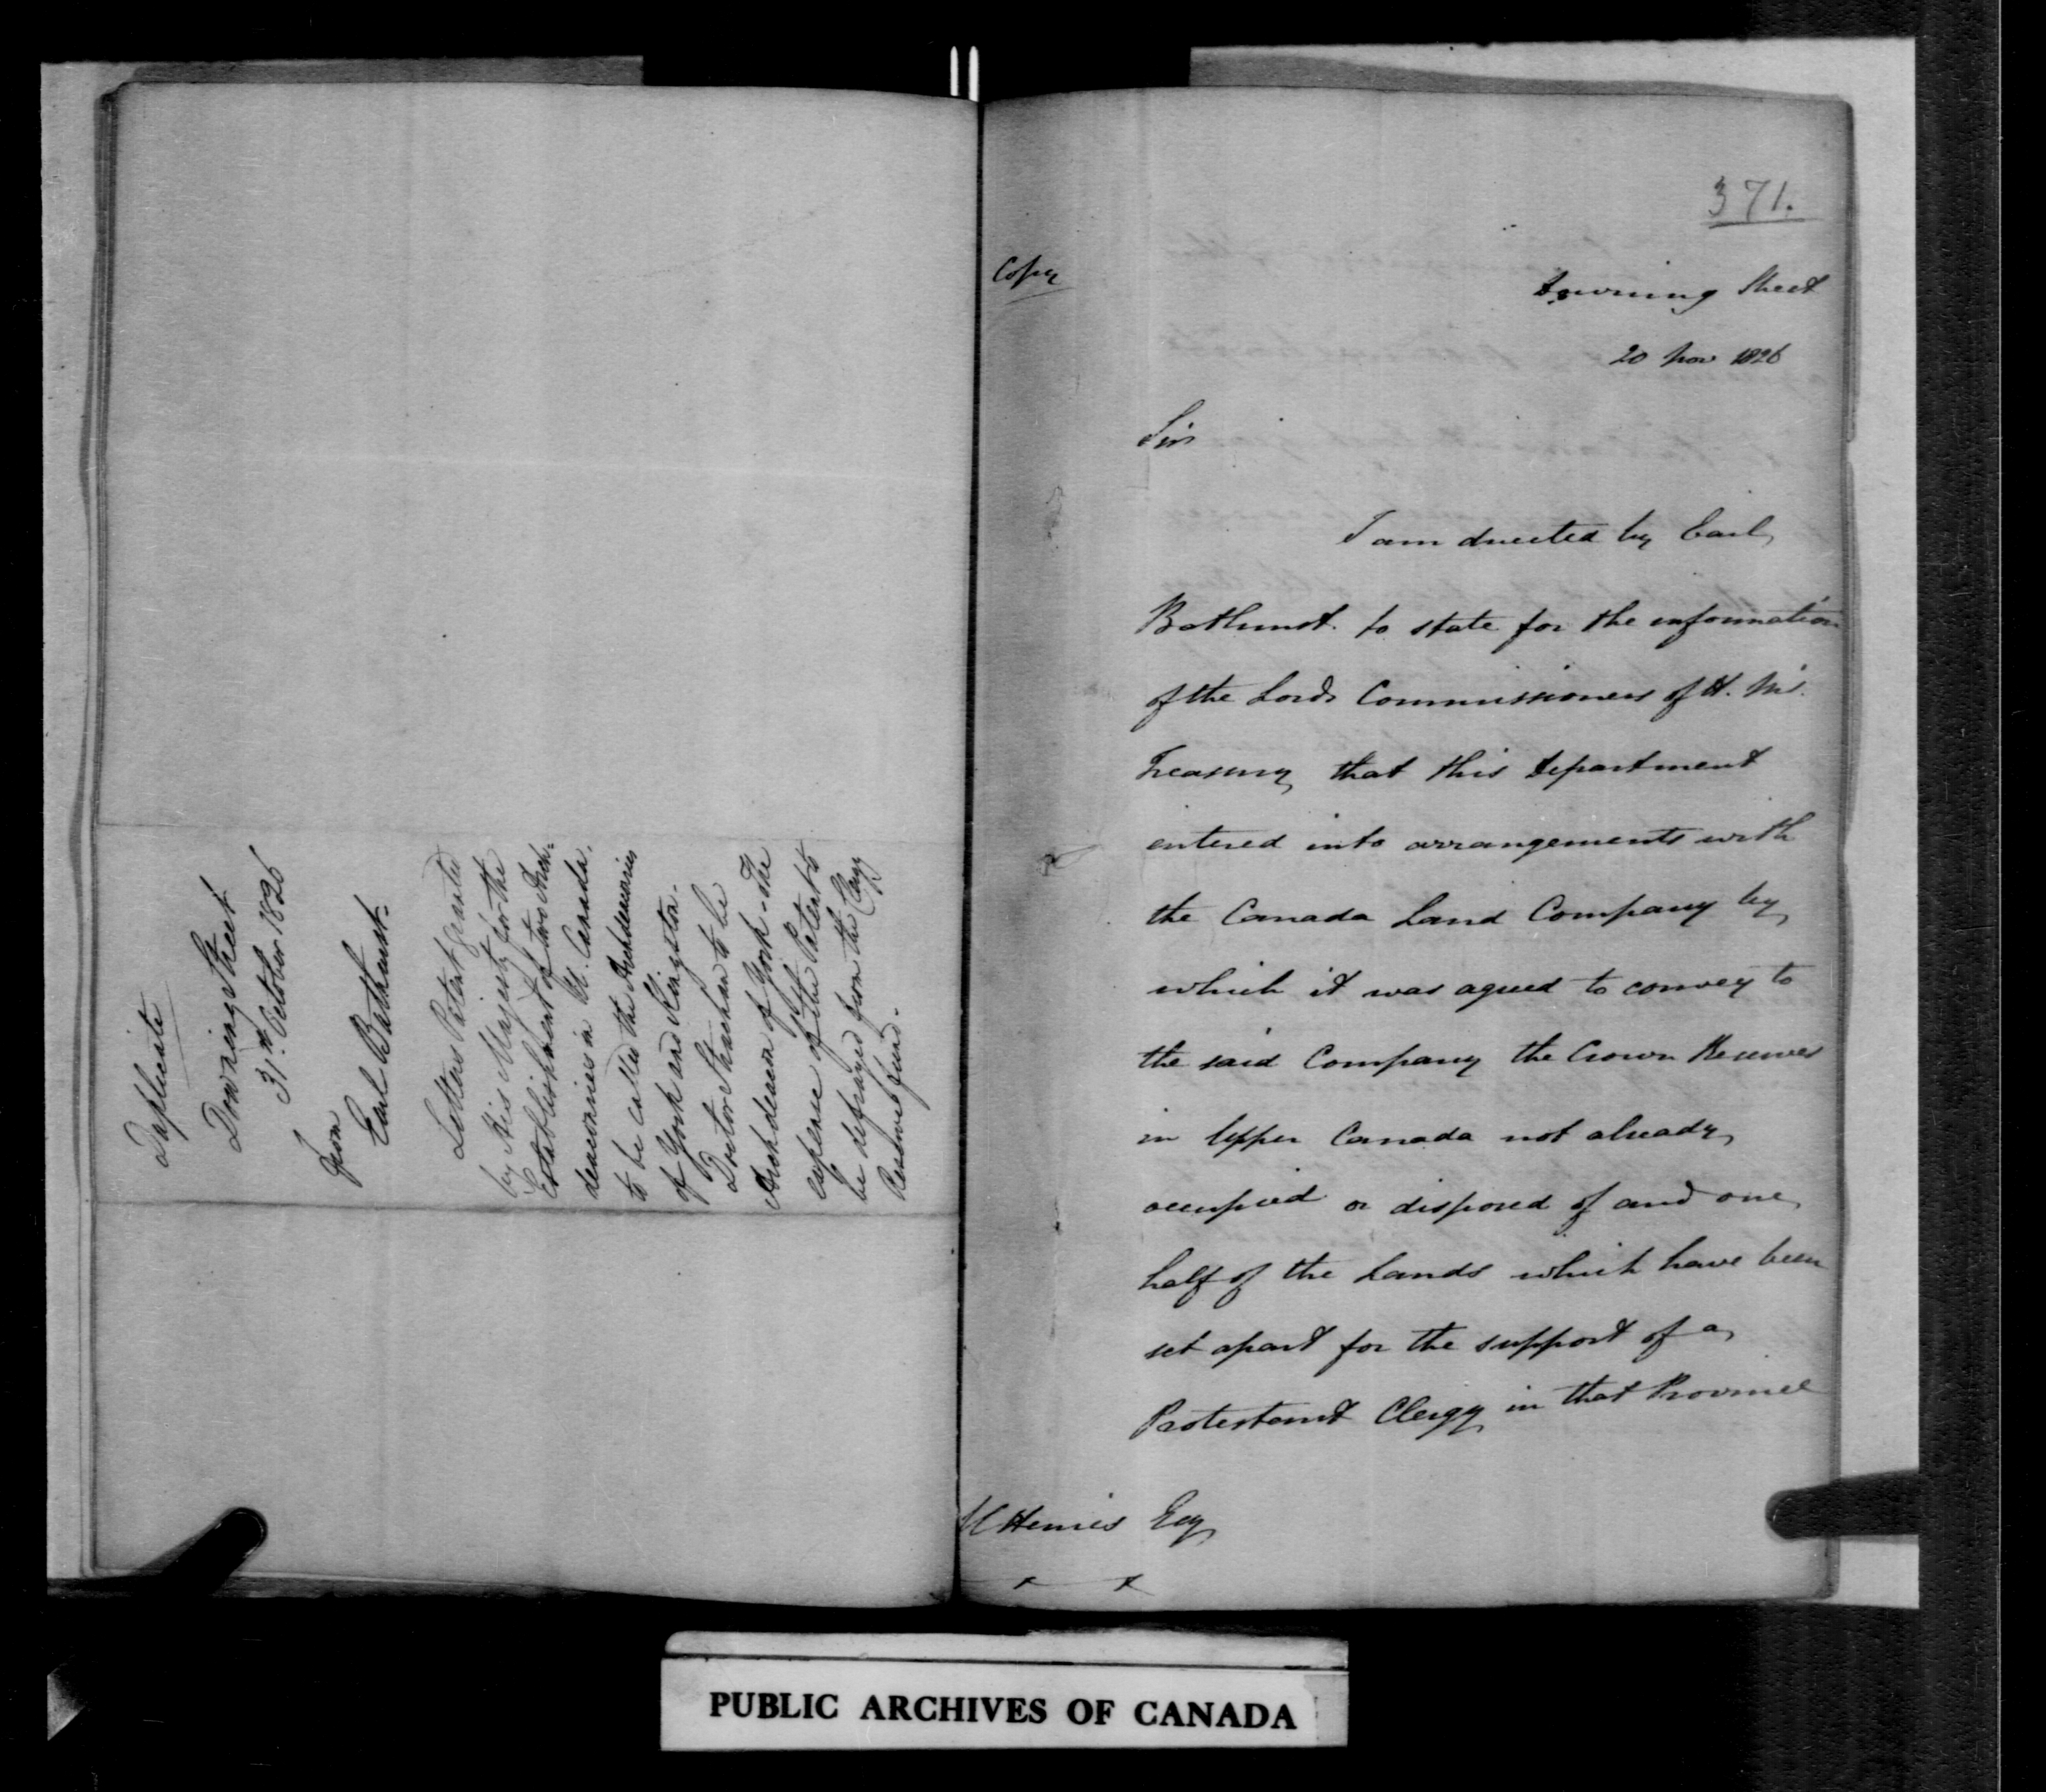 Duplicate
Downing Street
31st. October 1826
From
Earl Bathurst.
Letters Patent granted
by His Majesty for the
Establishment of two Arch-
deaconries in U. Canada.
to be called the Archdeaconries
of York and Kingston.
Doctor Strachan to be
Archdeacon of York - The
expense of the Patent to
be defrayed from the Clergy
Reserve fund.
371.
Copy
Downing Street
20 Nov 1826
Sir
I am directed by Earl
Bathurst to state for the information
of the Lords Commissioners of H. M's.
Treasury that this Department
entered into arrangements with
the Canada Land Company by
which it was agreed to convey to
the said Company the Crown Reserves
in Upper Canada not already
occupied or disposed of and one
half of the Lands which have been
set apart for the support of a
Protestant Clergy in that Province
Herries Esq
PUBLIC ARCHIVES OF CANADA